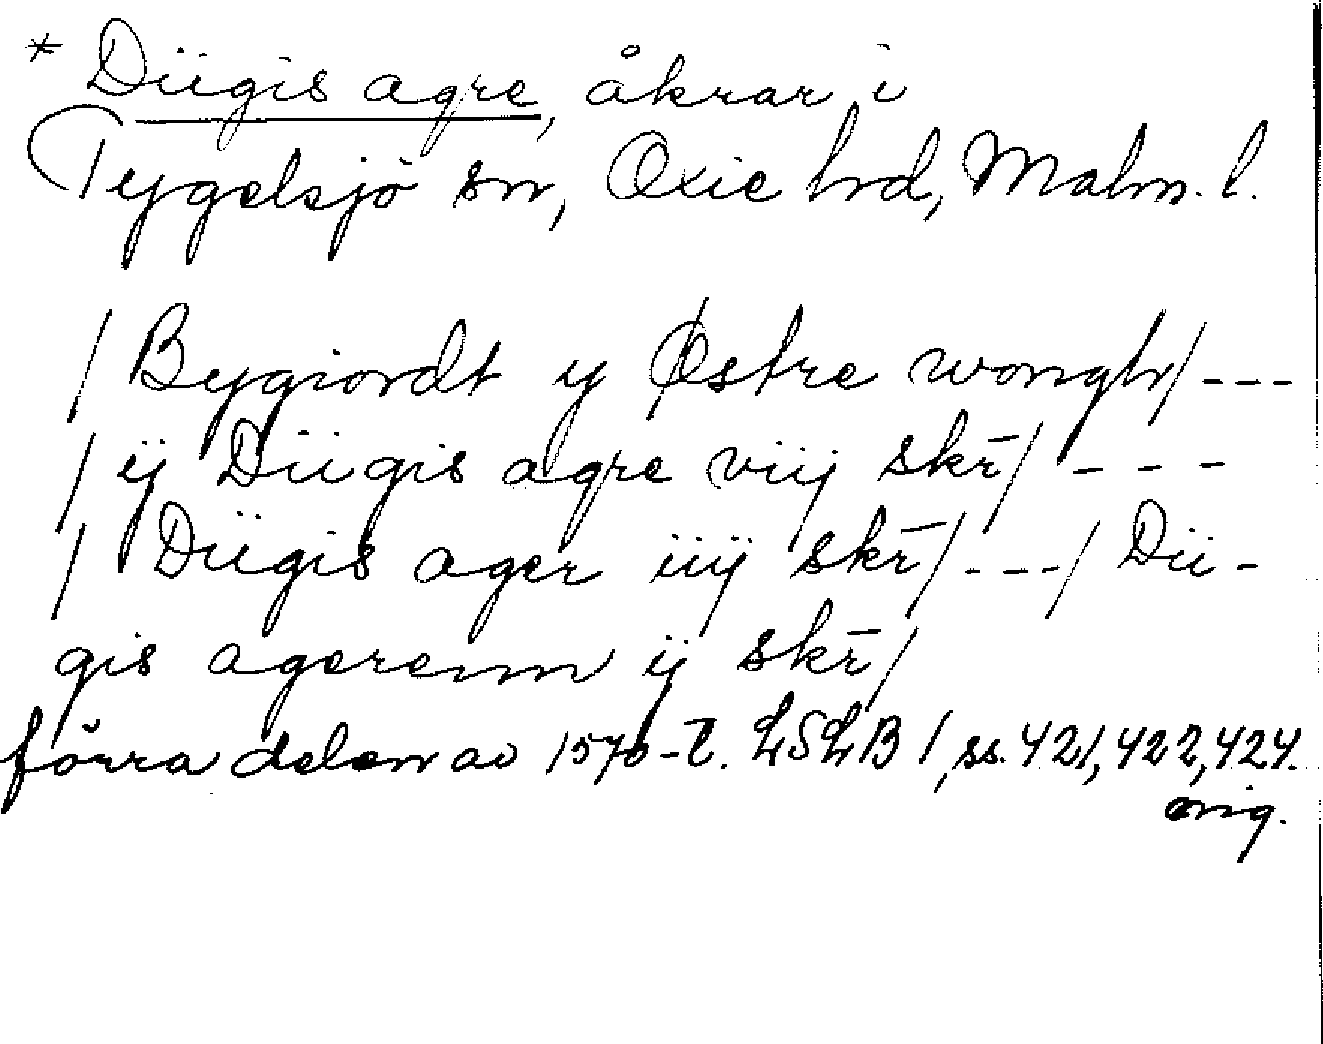 * Dügis agre, åkrar i
Tygelsjö sn, Oxie hrd, Malm. l.
/ Bygiordt y Østre wongh / ---
/ ij Dügis agre viij skr̄ / - - -
/ Dügis ager iiij skr̄ / --- / Dü-
gis agerenn ij skr̄ /
förra delen av 1570-t. LSLB 1, ss. 421, 422, 424.
orig.